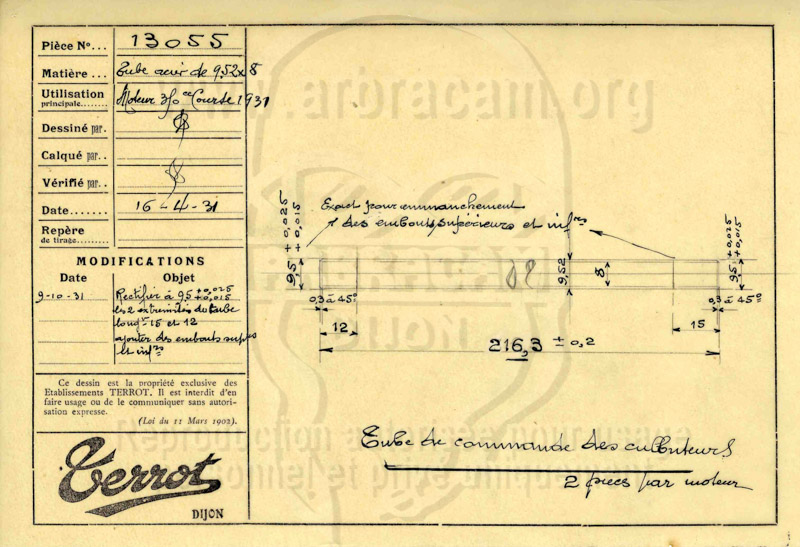 Pièce Nº... 13055
Matière ... Tube acier de 9,52 x 8
Utilisation principale........ Moteur 350 cc Course 1931
Dessiné par.
Calqué par..
Vérifié par..
Date........ 16-4-31
Repère de tirage.........
MODIFICATIONS
Date Objet
9-10-31 Rectifier à 9,5 +0,025 +0,015
les 2 extremités du tube
longr 15 et 12
ajouter des embouts supres
et infrs
Ce dessin est la propriété exclusive des
Etablissements TERROT. Il est interdit d'en
faire usage ou de le communiquer sans autori-
sation expresse.
(Loi du 11 Mars 1902).
Terrot
DIJON
www.arbracam.org
Exact pour emmanchement
des embouts supérieurs et infrs
9,5 +0,025 +0,015
9,52
8
9,5 +0,025 +0,015
0,3 à 45º
0,3 à 45º
12
15
216,3 ± 0,2
DIJON
Tube de commande des culbuteurs
2 pieces par moteur
Reproduction autorisée pour usage
personnel et privé uniquement